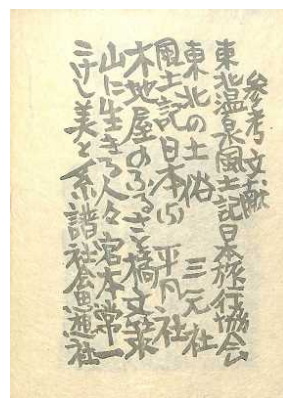 参考文献
東北温泉風土記 日本旅行協会
東北の土俗 三元社
風土記日本(5) 平凡社
木地屋のふるさと 橋文策
山に生きる人々 宮本常一
こけし美と系譜 社会思想社